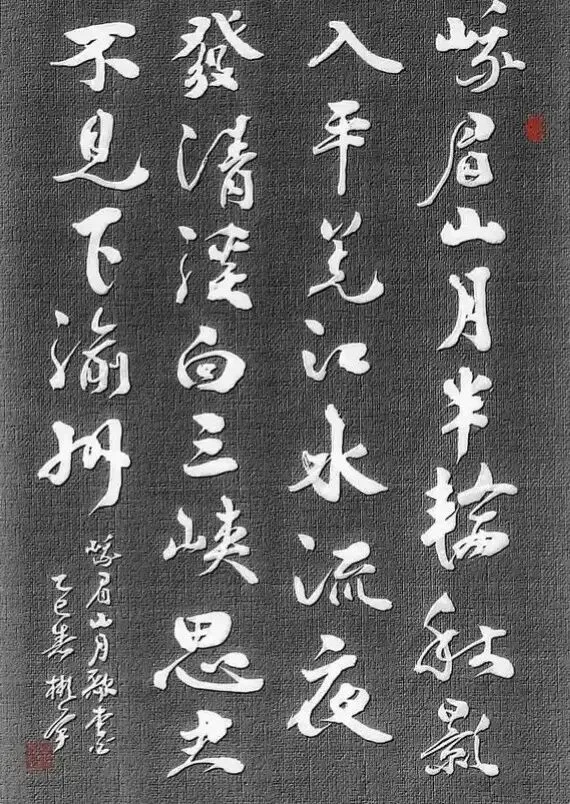 峨眉山月半輪秋影
入平羌江水流夜
發清溪向三峽思君
不見下渝州
峨眉山月歌
乙巳春彬